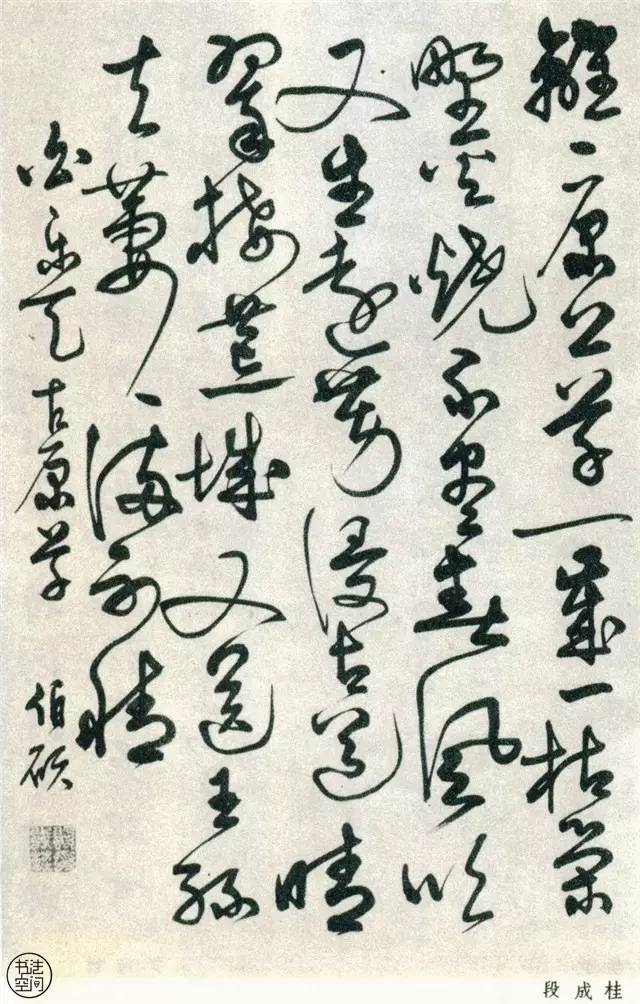 離〻原上草一歲一枯榮
野火燒不盡春風吹
又生遠芳侵古道晴
翠接荒城又送王孫
去萋〻滿別情
白樂天古原草 伯碩
段成桂
书法空间